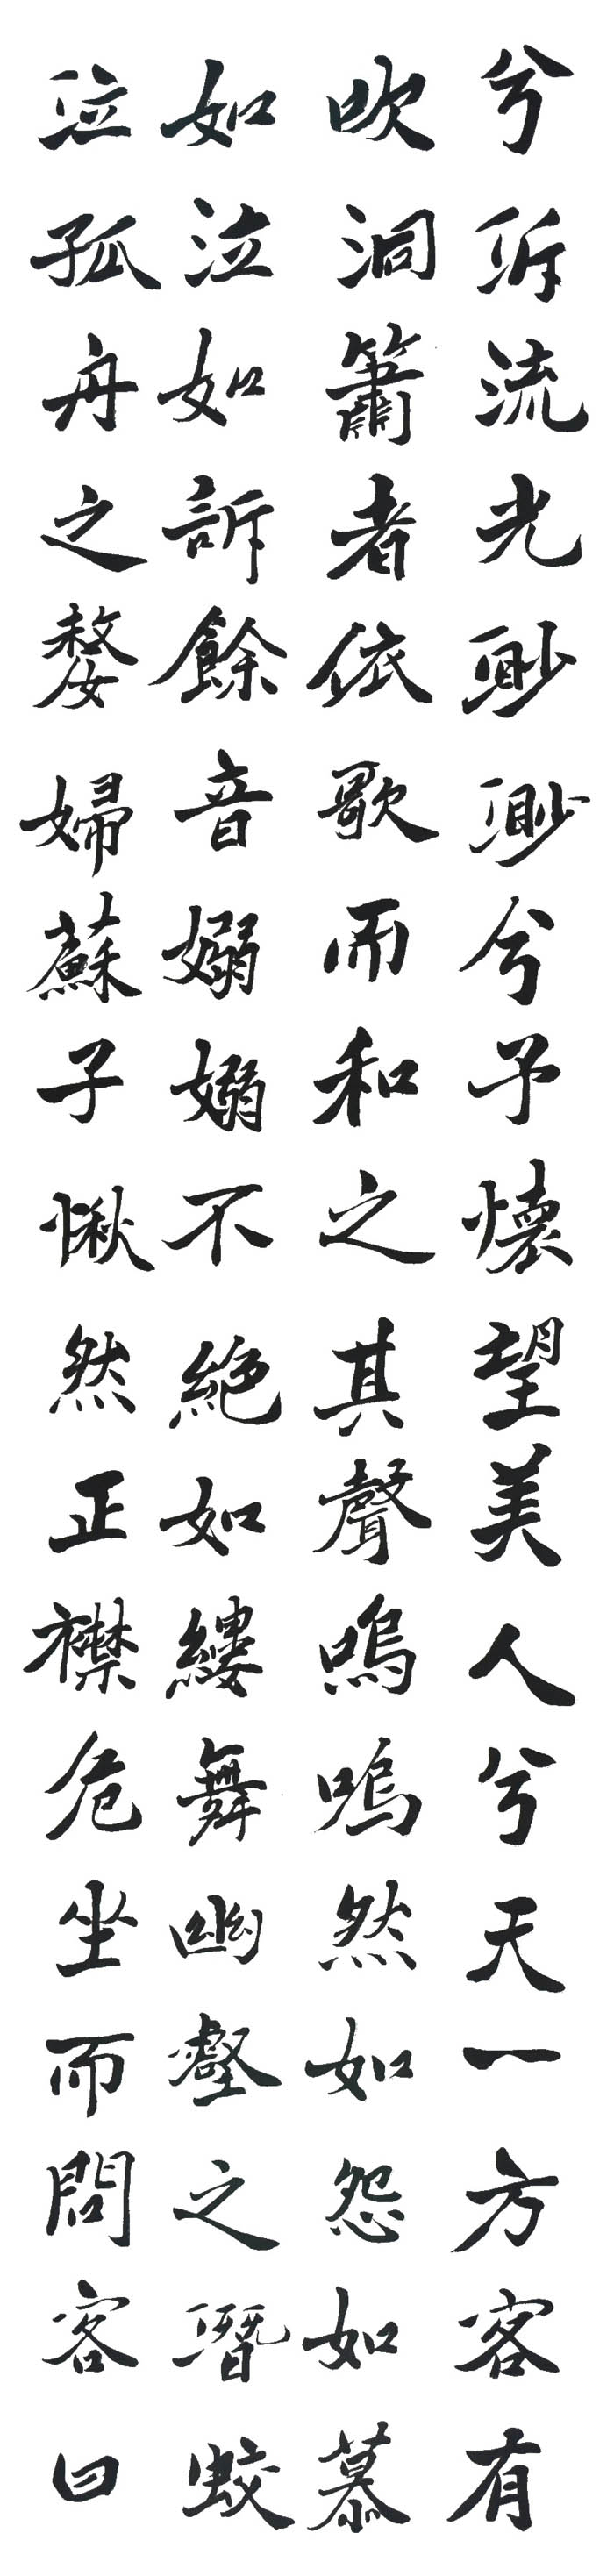 兮泝流光渺渺兮予懷望美人兮天一方客有
吹洞簫者依歌而和之其聲嗚嗚然如怨如慕
如泣如訴餘音嫋嫋不絕如縷舞幽壑之潛蛟
泣孤舟之嫠婦蘇子愀然正襟危坐而問客曰